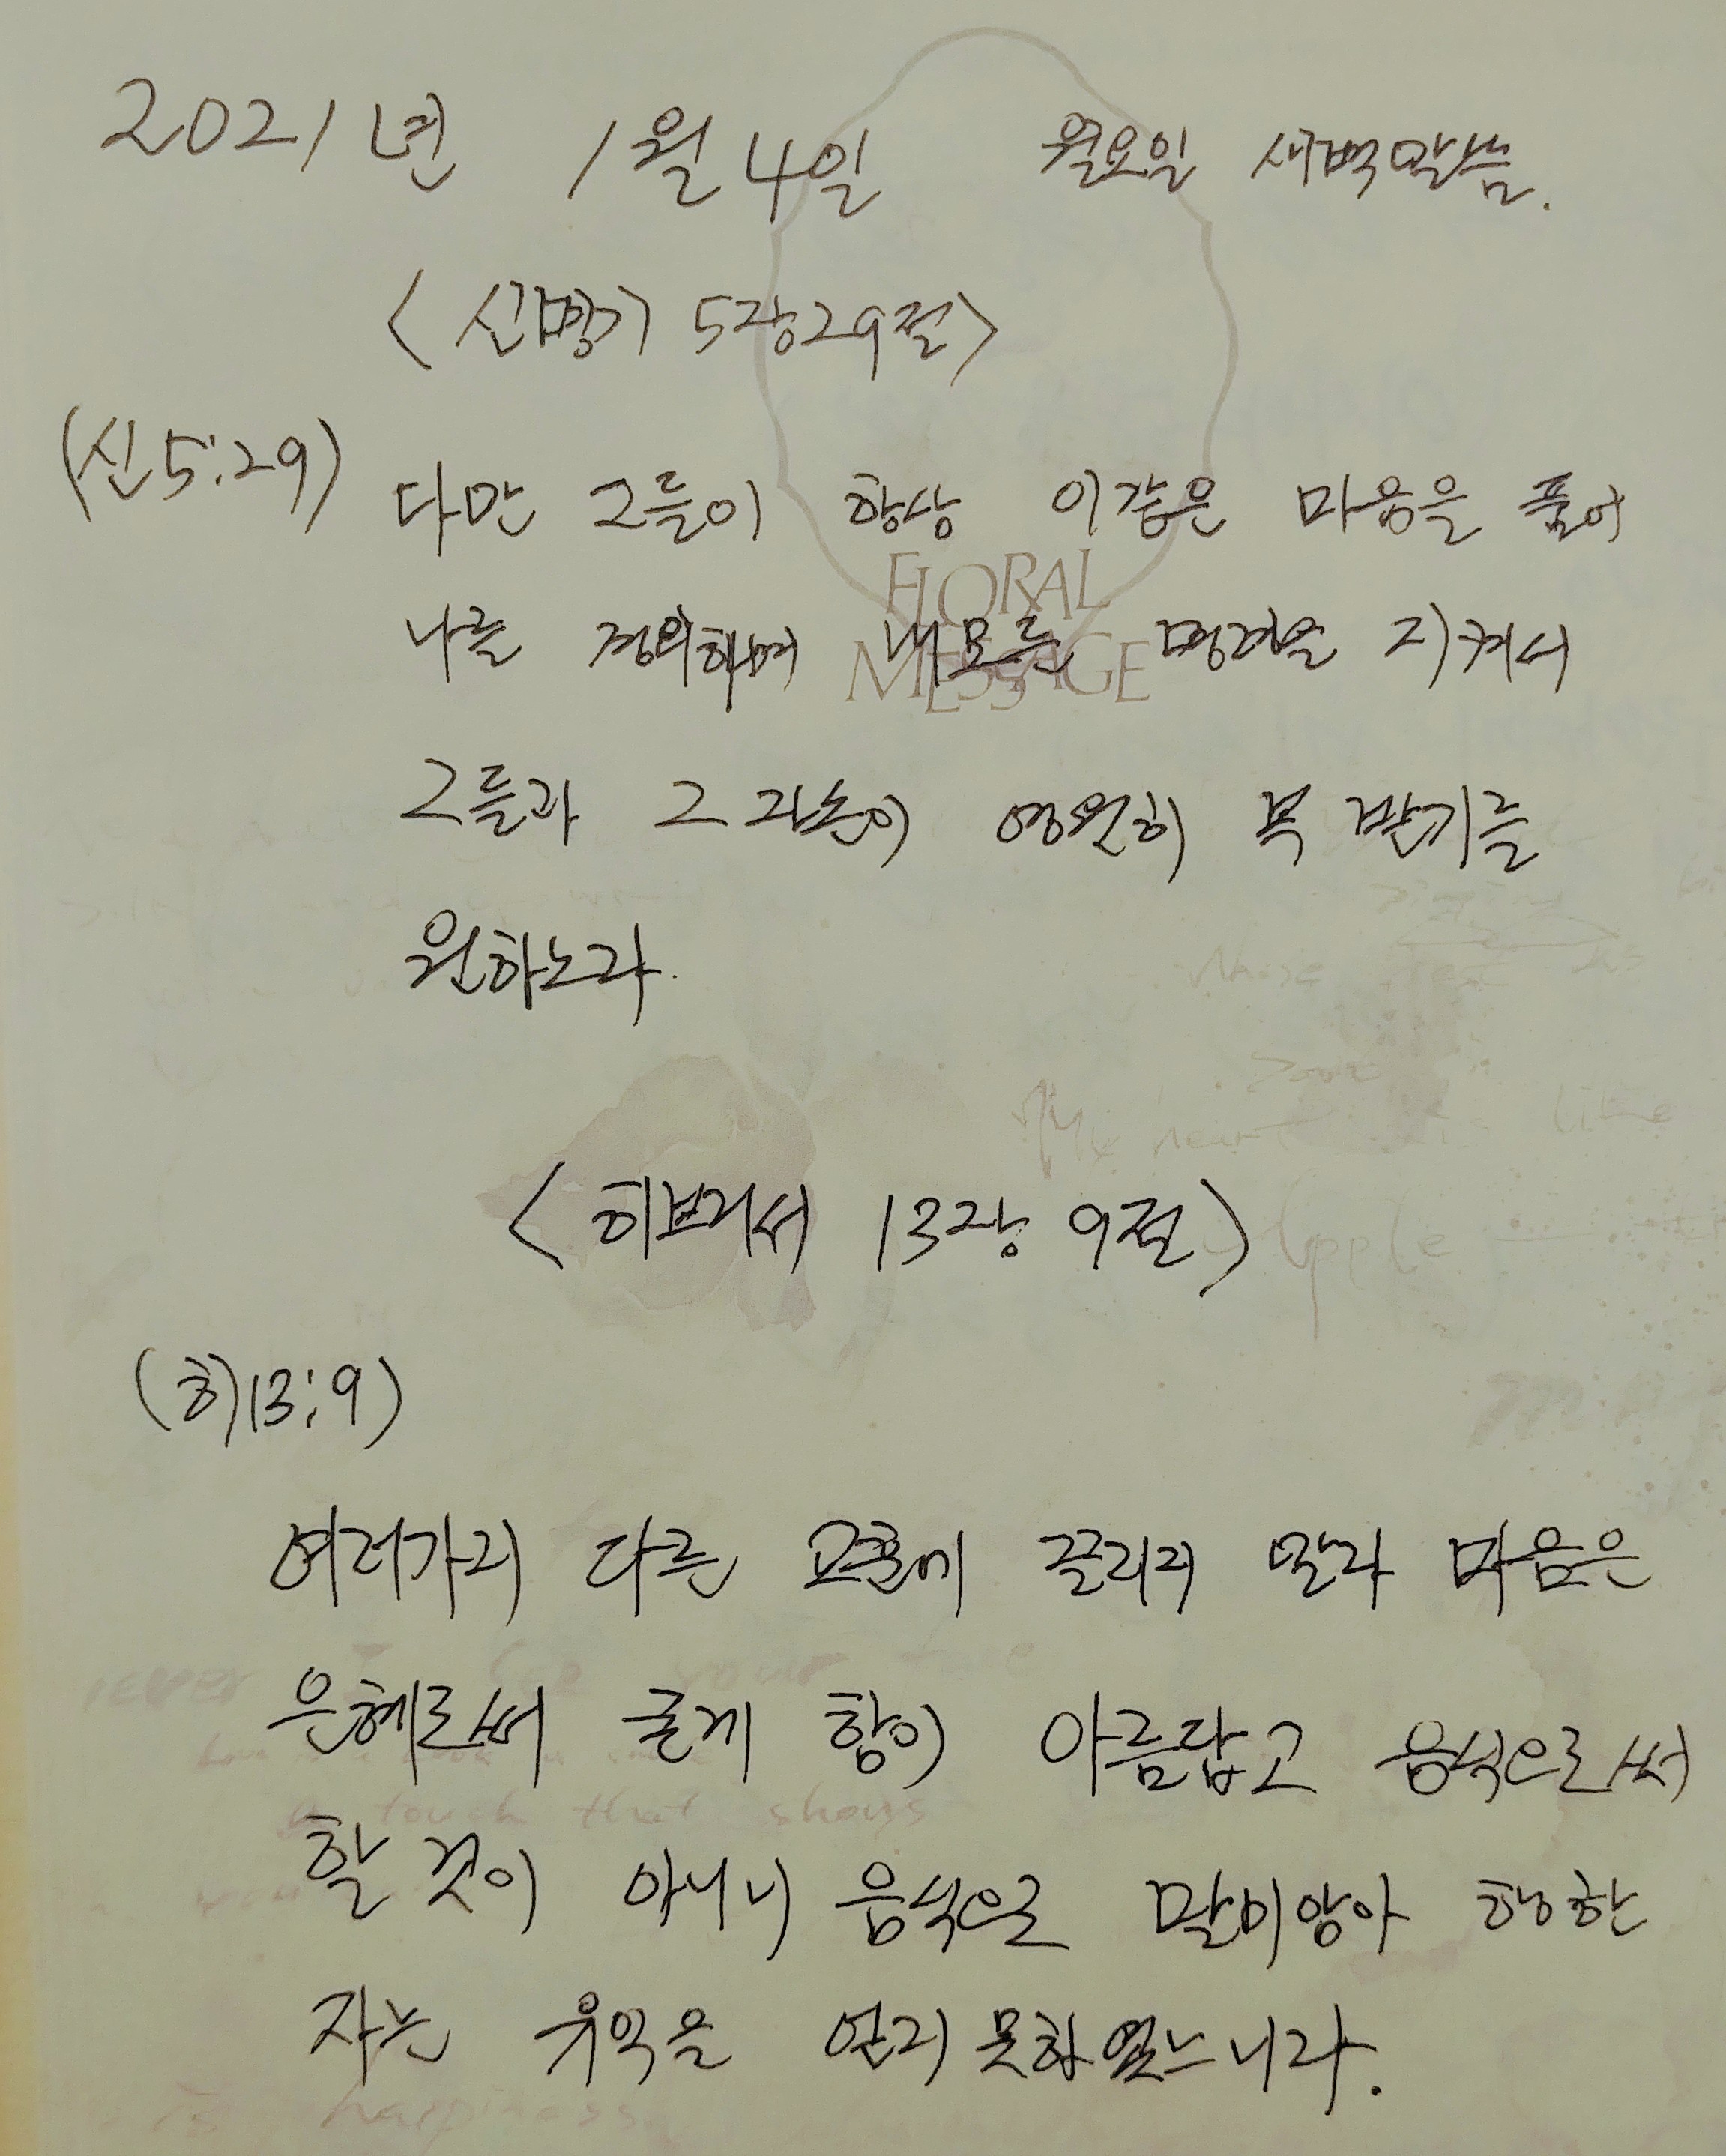 2021년 1월 4일 월요일 새벽말씀.
<신명기 5장29절>
(신5:29) 다만 그들이 항상 이같은 마음을 품어
FLORAL
나를 경외하며 내 모든 명령을 지켜서
MESSAGE
그들과 그 자손이 영원히 복 받기를
원하노라.
My heart is like
<히브리서 13장 9절>
Apple
(히13:9)
여러가지 다른 교훈에 끌리지 말라 마음은
은혜로써 굳게 함이 아름답고 음식으로써
touch that shows
할 것이 아니니 음식으로 말미암아 행한
자는 유익을 얻지 못하였느니라.
is happiness